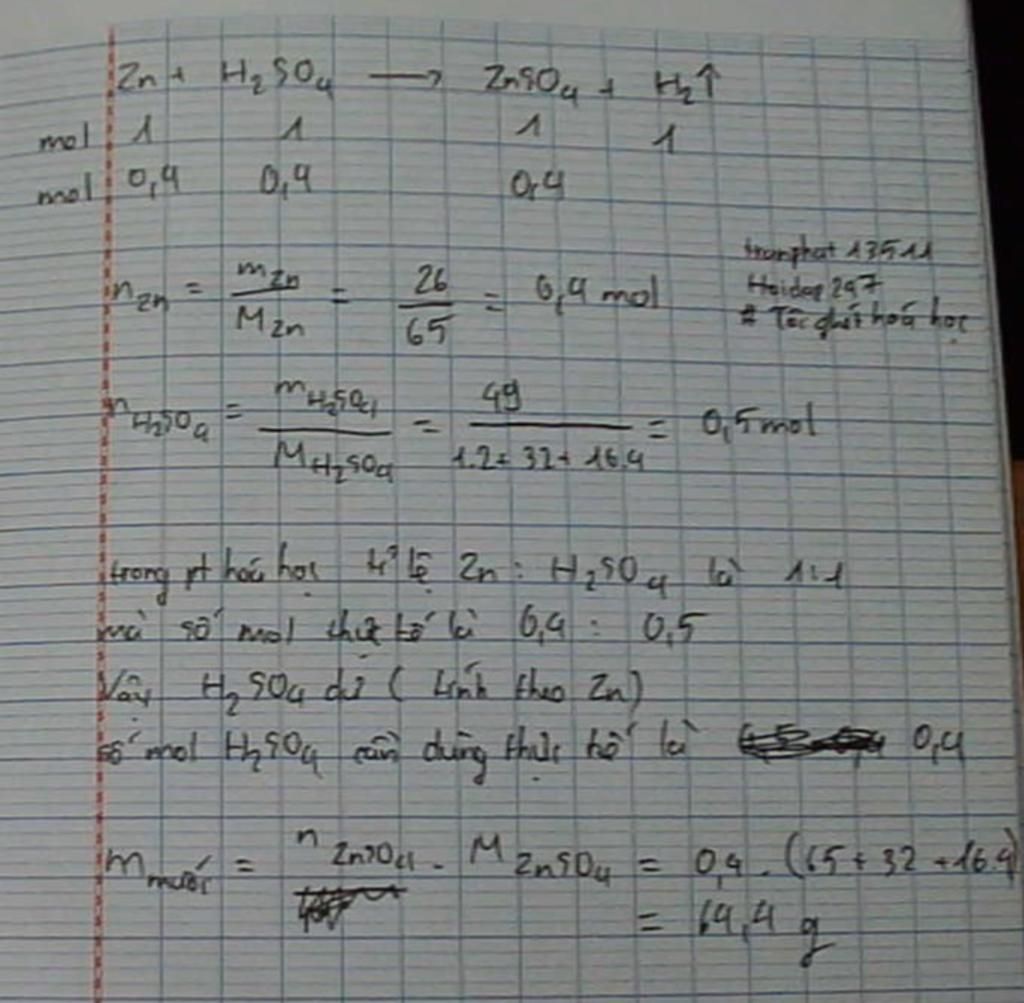 Zn + H₂SO₄ → ZnSO₄ + H₂↑
mol 1 1 1 1
mol 0,4 0,4 0,4
n Zn = m Zn / M Zn = 26 / 65 = 0,4 mol
tranphat 13511
Hoidap 247
# Tốc hoá học
n H₂SO₄ = m H₂SO₄ / M H₂SO₄ = 49 / 1.2 + 32 + 16.4 = 0,5 mol
trong pt hoá học tỉ lệ Zn : H₂SO₄ là 1:1
mà số mol thực tế là 0,4 : 0,5
Vậy H₂SO₄ dư ( tính theo Zn)
số mol H₂SO₄ cần dùng thực tế là 0,4
m muối = n ZnSO₄ . M ZnSO₄ = 0,4 . (65 + 32 + 16.4)
= 64,4 g